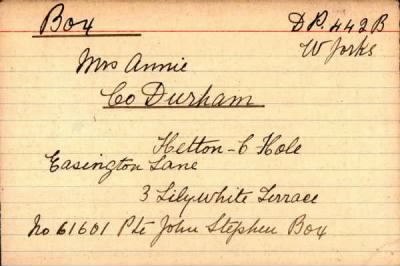 Box D.P. 442B
W Yorks
Mrs Annie
Co Durham
Hetton-le-Hole
Easington Lane
3 Lilywhite Terrace
No 61601 Pte John Stephen Box